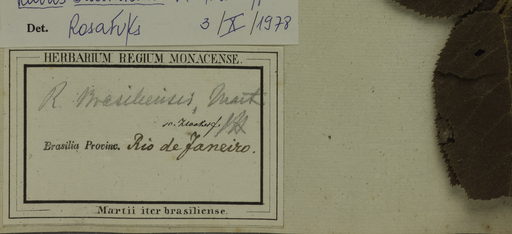 Det. Rosa Fuks 3/X/1978
HERBARIUM REGIUM MONACENSE.
R. Brasiliensis, Mart
Brasilia Provinc. Rio de Janeiro.
Martii iter brasiliense.